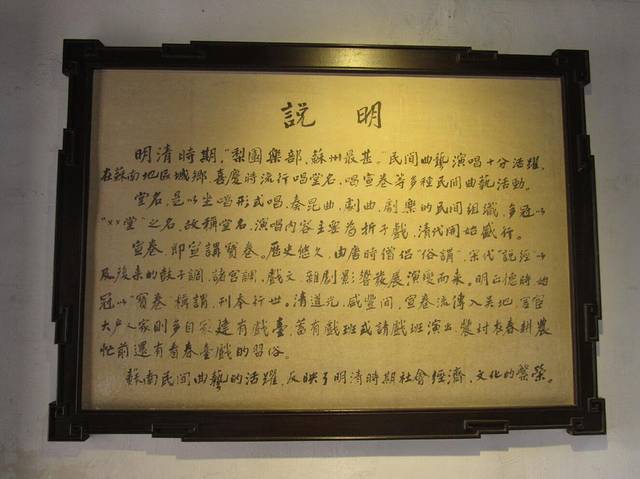 説明
明清時期，"梨園樂部，蘇州最甚"。民间曲藝演唱十分活躍，
在蘇南地區城鄉，喜慶時流行唱堂名、唱宣卷等多種民间曲藝活動。
堂名，是以坐唱形式唱、奏昆曲、劇曲、劇樂的民间組織，多冠以
"××堂"之名，故稱堂名，演唱内容主要為折子戲，清代開始盛行。
宣卷，即宣講寶卷。歷史悠久，由唐時僧侶"俗謂"、宋代"説經"以
及後来的鼓子調、諸宫調、戲文、雜劇影響發展演變而来。明正德時始
冠以"寶卷"稱謂，刊本行世。清道光、咸豐间，宣卷流傳入吴地，官宦
大户人家則多自家建有戲臺，蓄有戲班或請戲班演出，農村在春耕農
忙前還有看春臺戲的習俗。
蘇南民间曲藝的活躍，反映了明清時期社會經濟、文化的繁榮。